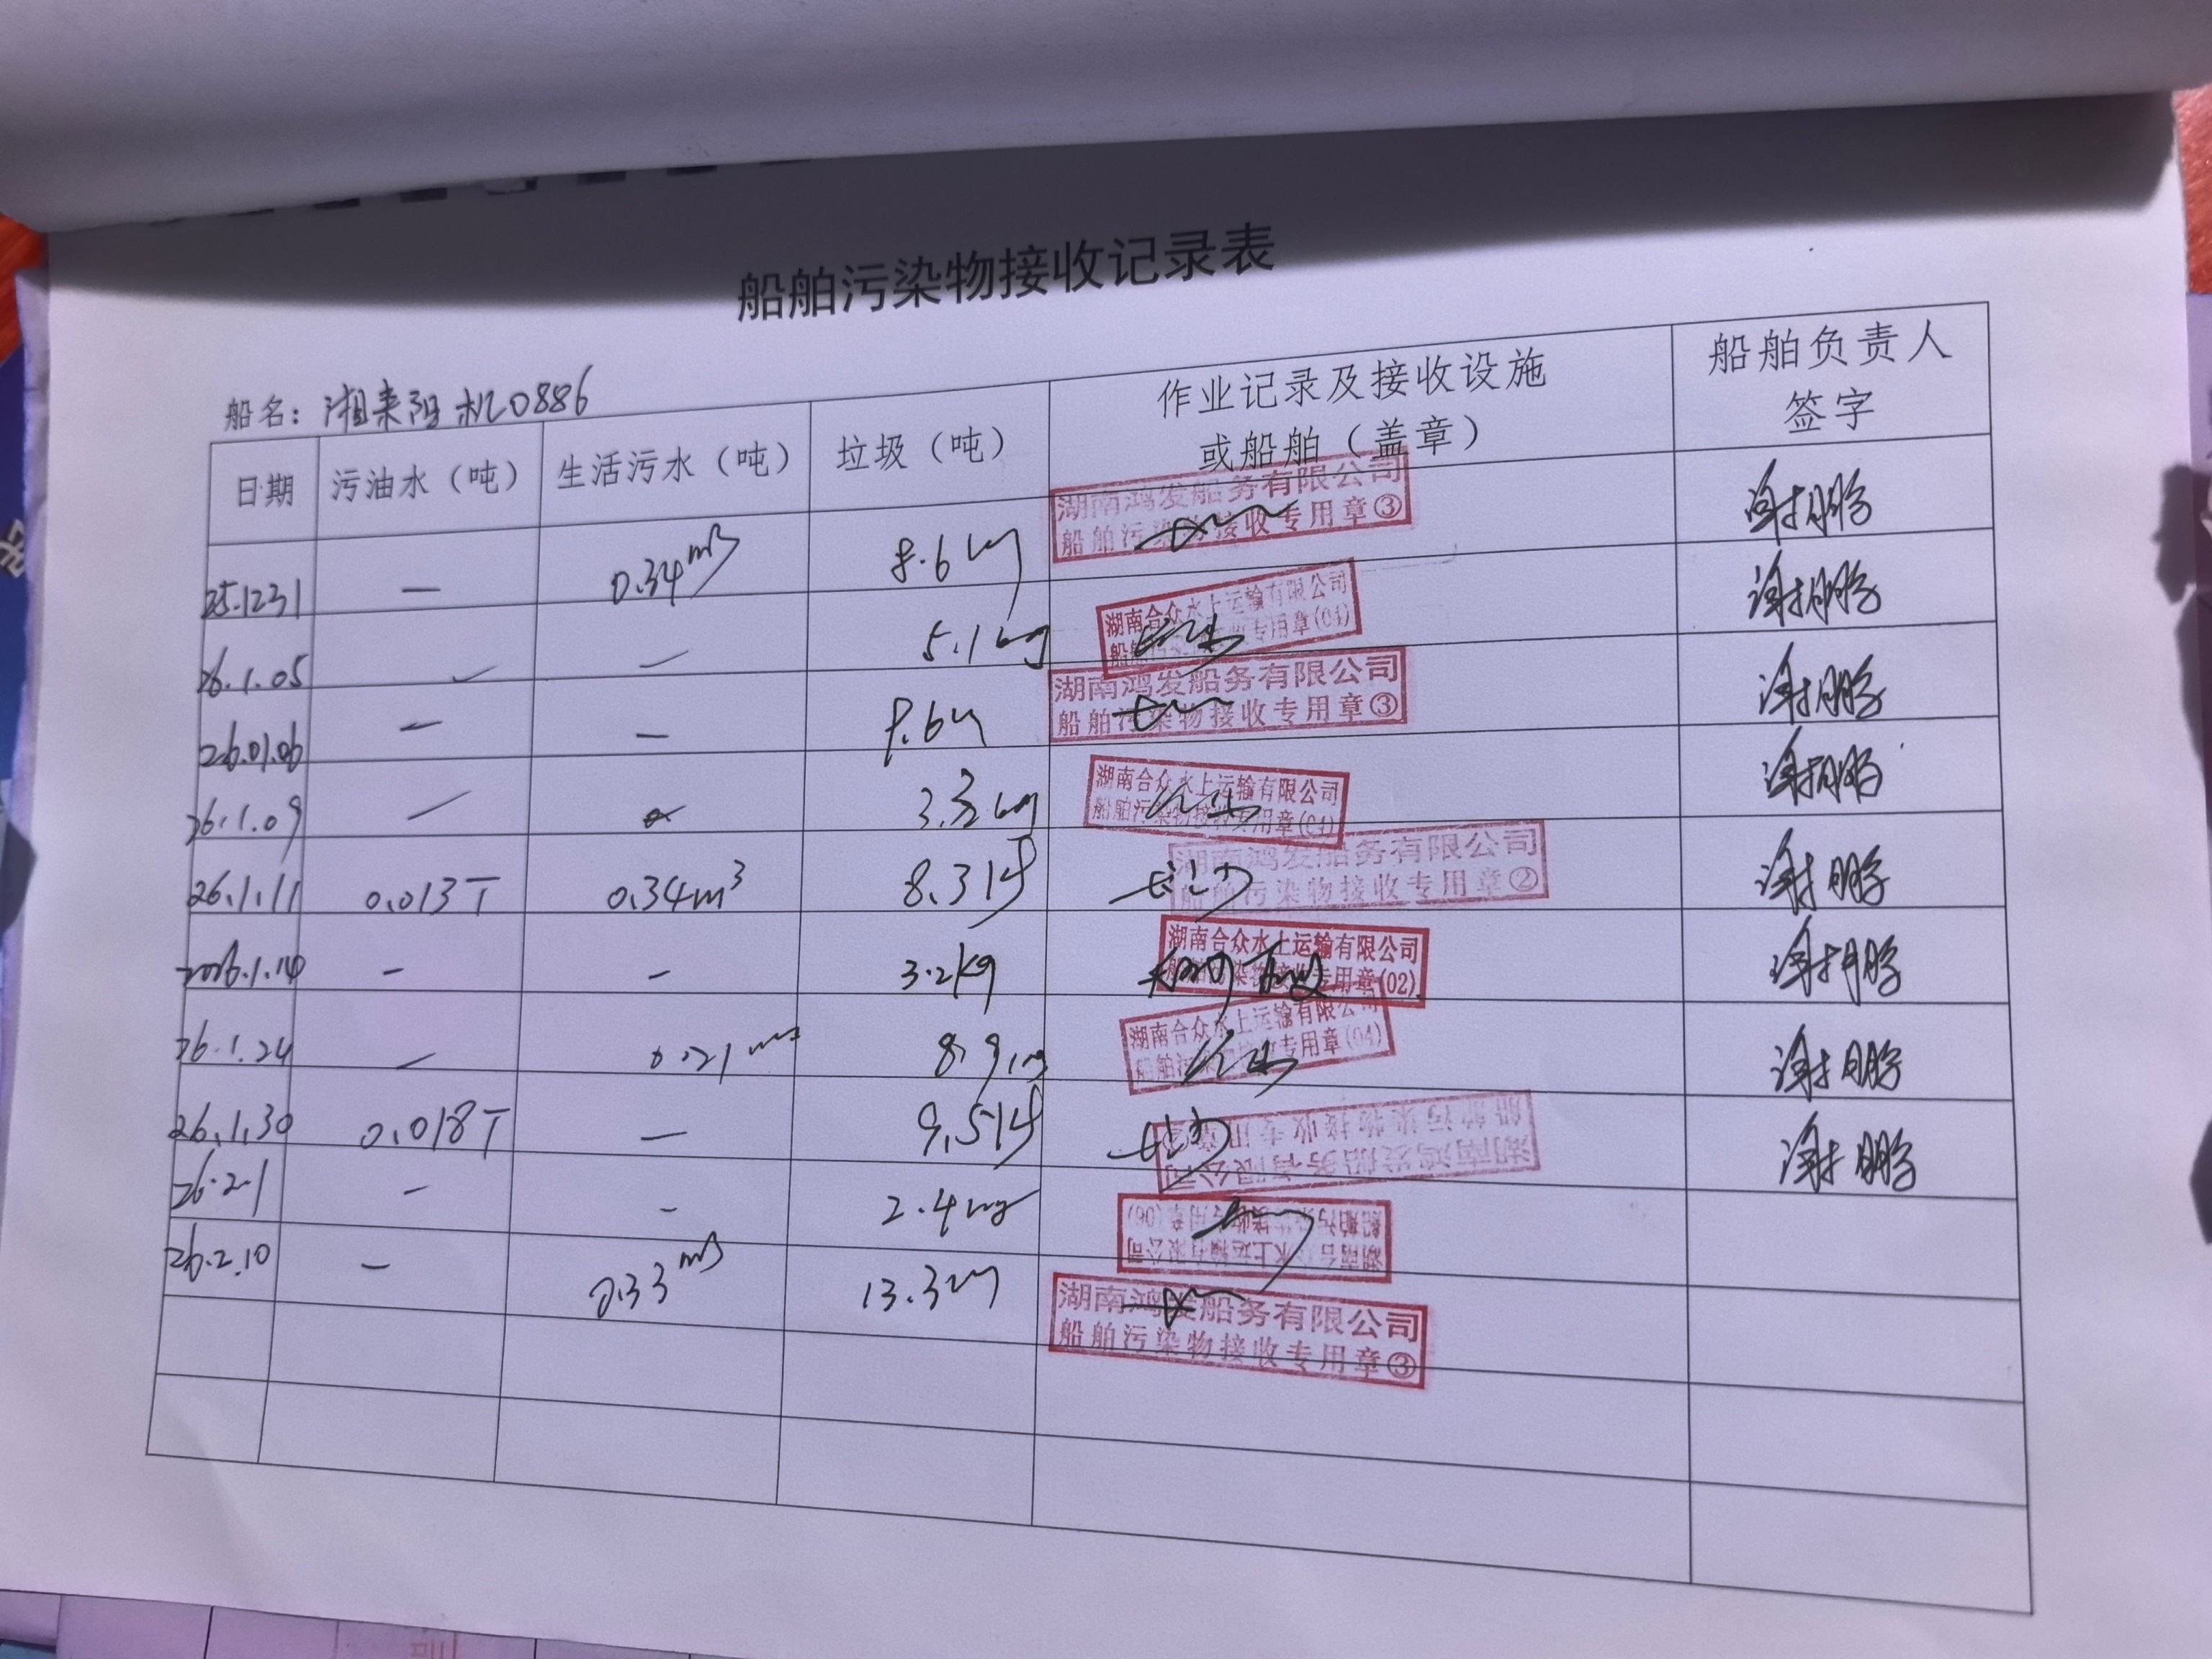 船舶污染物接收记录表
船名：湘耒阳机0886
日期 污油水（吨） 生活污水（吨） 垃圾（吨） 作业记录及接收设施或船舶（盖章） 船舶负责人签字
25.1231 — 0.34m³ 8.6kg 湖南鸿发船务有限公司 船舶污染物接收专用章③ 谢鹏
26.1.05 5.1kg 湖南合众水上运输有限公司 船舶污染物接收专用章(04) 谢鹏
26.01.06 — — 8.6kg 湖南鸿发船务有限公司 船舶污染物接收专用章③ 谢鹏
26.1.09 湖南合众水上运输有限公司 船舶污染物接收专用章(04) 谢鹏
26.1.11 0.013T 0.34m³ 8.3kg 湖南鸿发船务有限公司 船舶污染物接收专用章② 谢鹏
2026.1.14 — — 3.2kg 湖南合众水上运输有限公司 船舶污染物接收专用章(02) 谢鹏
26.1.24 — 0.21m³ 8.9kg 湖南合众水上运输有限公司 船舶污染物接收专用章(04) 谢鹏
26.1.30 0.018T — 9.5kg 湖南鸿发船务有限公司 船舶污染物接收专用章 谢鹏
26.2.1 — — 2.4kg 湖南合众水上运输有限公司 船舶污染物接收专用章(06)
26.2.10 — 0.33m³ 13.3kg 湖南鸿发船务有限公司 船舶污染物接收专用章③